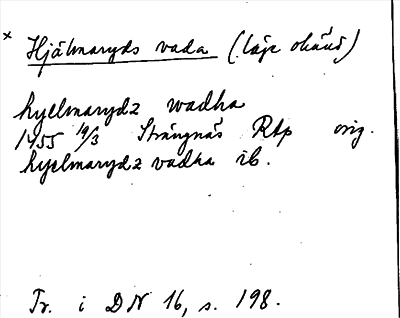 * Hjälmaryds vada (läge okänd)
hyelmarydz wadha
1455 19/3 Strängnäs Rtp orig.
hyelmarydz vadha ib.
Tr. i DN 16, s. 198.